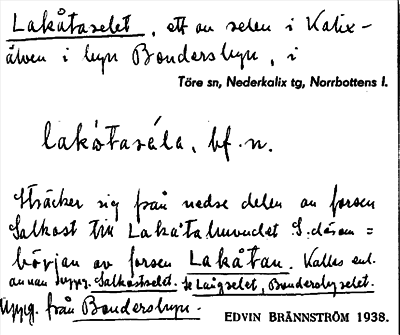 Lakåtaselet, ett av selen i Kalix-
älven i byn Bondersbyn, i
Töre sn, Nederkalix tg, Norrbottens l.
lakåtaséla, bf. n.
Sträcker sig från nedre delen av forsen
Salkost till Lakåtahuvudet l. därom =
början av forsen Lakåtan. Kallas enl.
annan uppg. Salkostselet. se Laigselet, Bondersbyselet.
Uppg. från Bondersbyn.
EDVIN BRÄNNSTRÖM 1938.